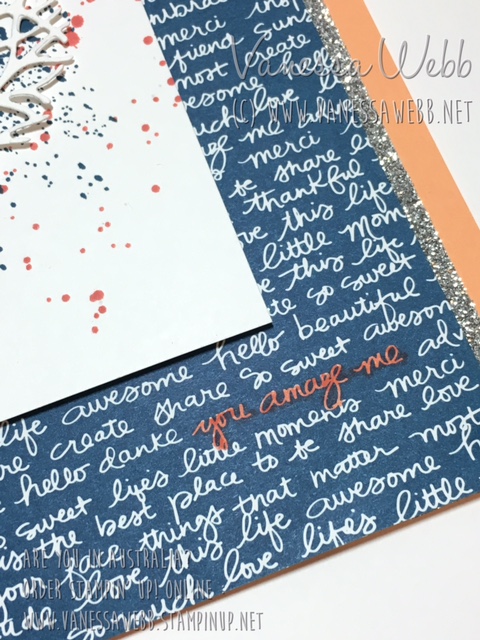 Vanessa Webb
(C) WWW.VANESSAWEBB.NET
merci
friend
most create
awesome
love
me
merci
to be share
thankful
love this life
little
this life
so sweet
life awesome hello beautiful
create share so sweet awesome
hello danke you amaze me
so sweet lifes little moments merci
is the best place to be share love
things that matter most
love this life awesome
so much love life's little
ARE YOU IN AUSTRALIA?
ORDER STAMPIN' UP! ONLINE
WWW.VANESSAWEBB.STAMPINUP.NET